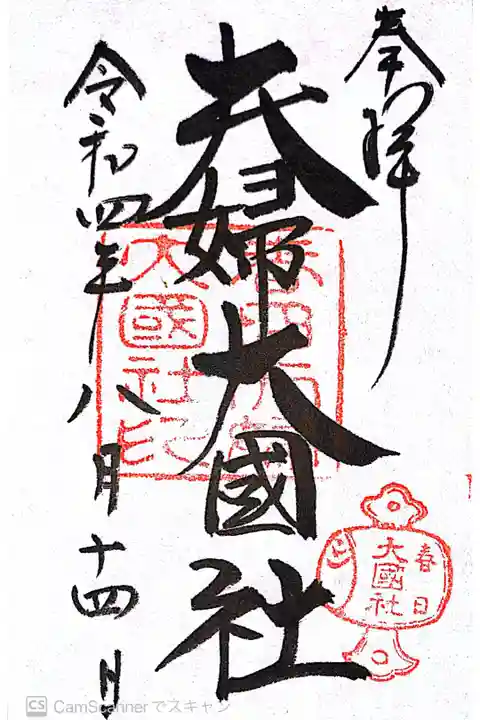 奉拝
夫婦大國社
令和四年八月十四日
大國社印
春日
大國社
CS CamScannerでスキャン